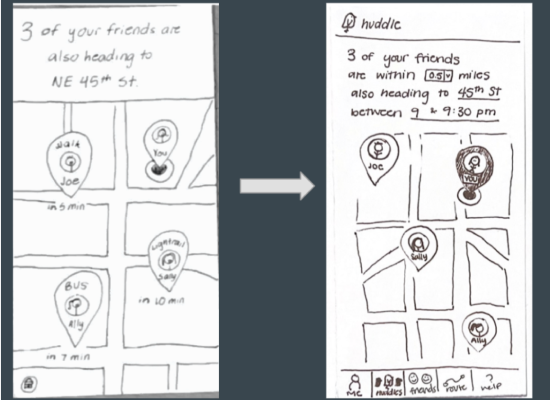 3 of your friends are
also heading to
NE 45th St.
Walk
Joe
in 5 min
You
Lightrail
Sally
in 10 min
BUS
Ally
in 7 min
huddle
3 of your friends
are within 0.5 miles
also heading to 45th St
between 9 & 9:30 pm
JOE
YOU
Sally
Ally
ME
huddles
friends
route
help